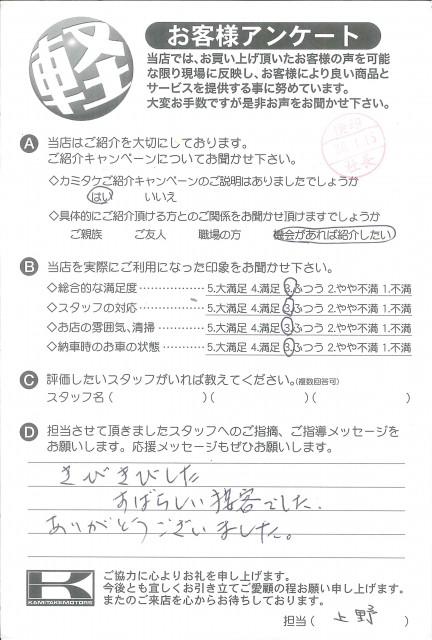 軽
お客様アンケート
当店では、お買い上げ頂いたお客様の声を可能
な限り現場に反映し、お客様により良い商品と
サービスを提供する事に努めています。
大変お手数ですが是非お声をお聞かせ下さい。
A 当店はご紹介を大切にしております。
ご紹介キャンペーンについてお聞かせ下さい。
◇カミタケご紹介キャンペーンのご説明はありましたでしょうか
はい いいえ
◇具体的にご紹介頂ける方とのご関係をお聞かせ頂けますでしょうか
ご親族 ご友人 職場の方 機会があれば紹介したい
B 当店を実際にご利用になった印象をお聞かせ下さい。
◇総合的な満足度 5.大満足 4.満足 3.ふつう 2.やや不満 1.不満
◇スタッフの対応 5.大満足 4.満足 3.ふつう 2.やや不満 1.不満
◇お店の雰囲気、清掃 5.大満足 4.満足 3.ふつう 2.やや不満 1.不満
◇納車時のお車の状態 5.大満足 4.満足 3.ふつう 2.やや不満 1.不満
C 評価したいスタッフがいれば教えてください。(複数回答可)
スタッフ名( )( )( )
D 担当させて頂きましたスタッフへのご指摘、ご指導メッセージを
お願いします。応援メッセージもぜひお願いします。
きびきびした
すばらしい接客でした.
ありがとうございました。
K
KAMITAKEMOTORS
ご協力に心よりお礼を申し上げます。
今後とも宜しくお引き立てご愛顧の程お願い申し上げます。
またのご来店を心からお待ちしております。
担当( 上野 )